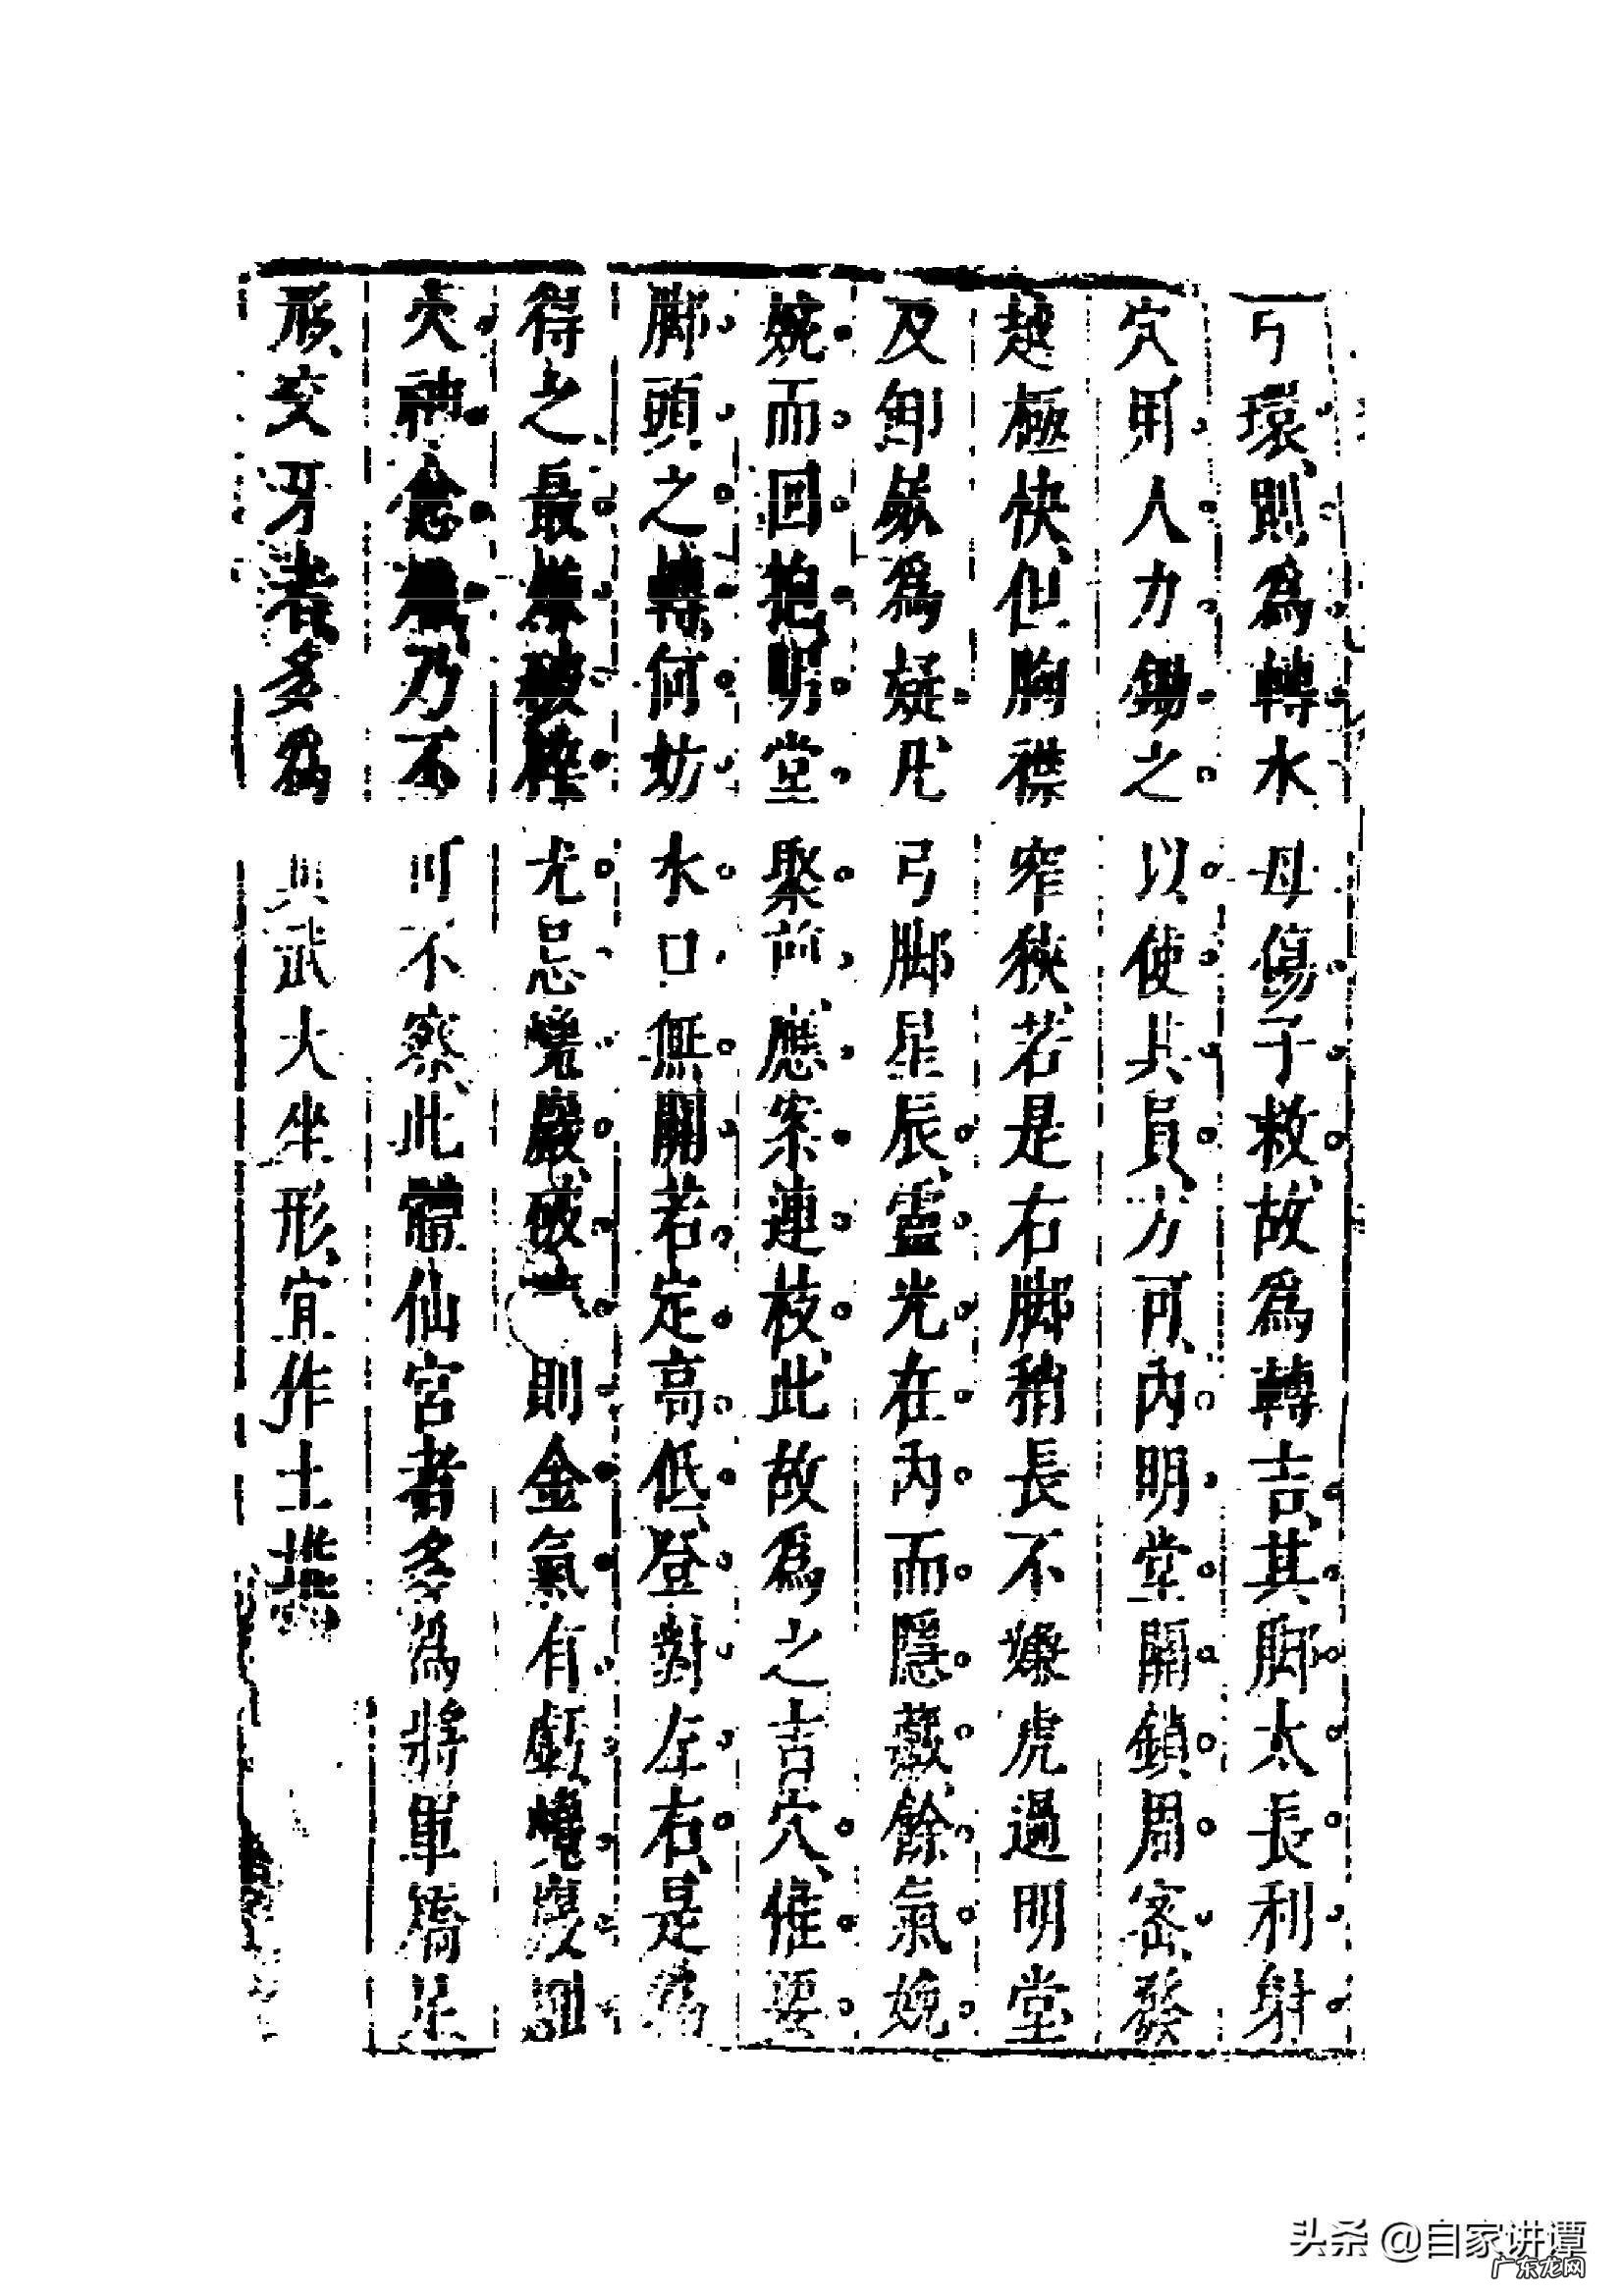 弓環則為轉水母傷子救故為轉吉其脚太長利射
穴用人力鋤之以使其員方可內明堂開鎖周密發
越極快但胸襟窄狹若是右脚稍長不嫌虎過明堂
及卸斂為疑凡弓脚星辰靈光在內而隱藏餘氣婉
婉而回抱明堂聚前應案連枝此故為之吉穴催要
脚頭之轉何妨水口無關若定高低登對左右是為
得之最破尤忌巖破則金氣有虧則
穴神乃不可不察此體仙宮者多為將軍
形交牙者多為真武大坐形宜作土
头条 @自家讲谭
广东龙网